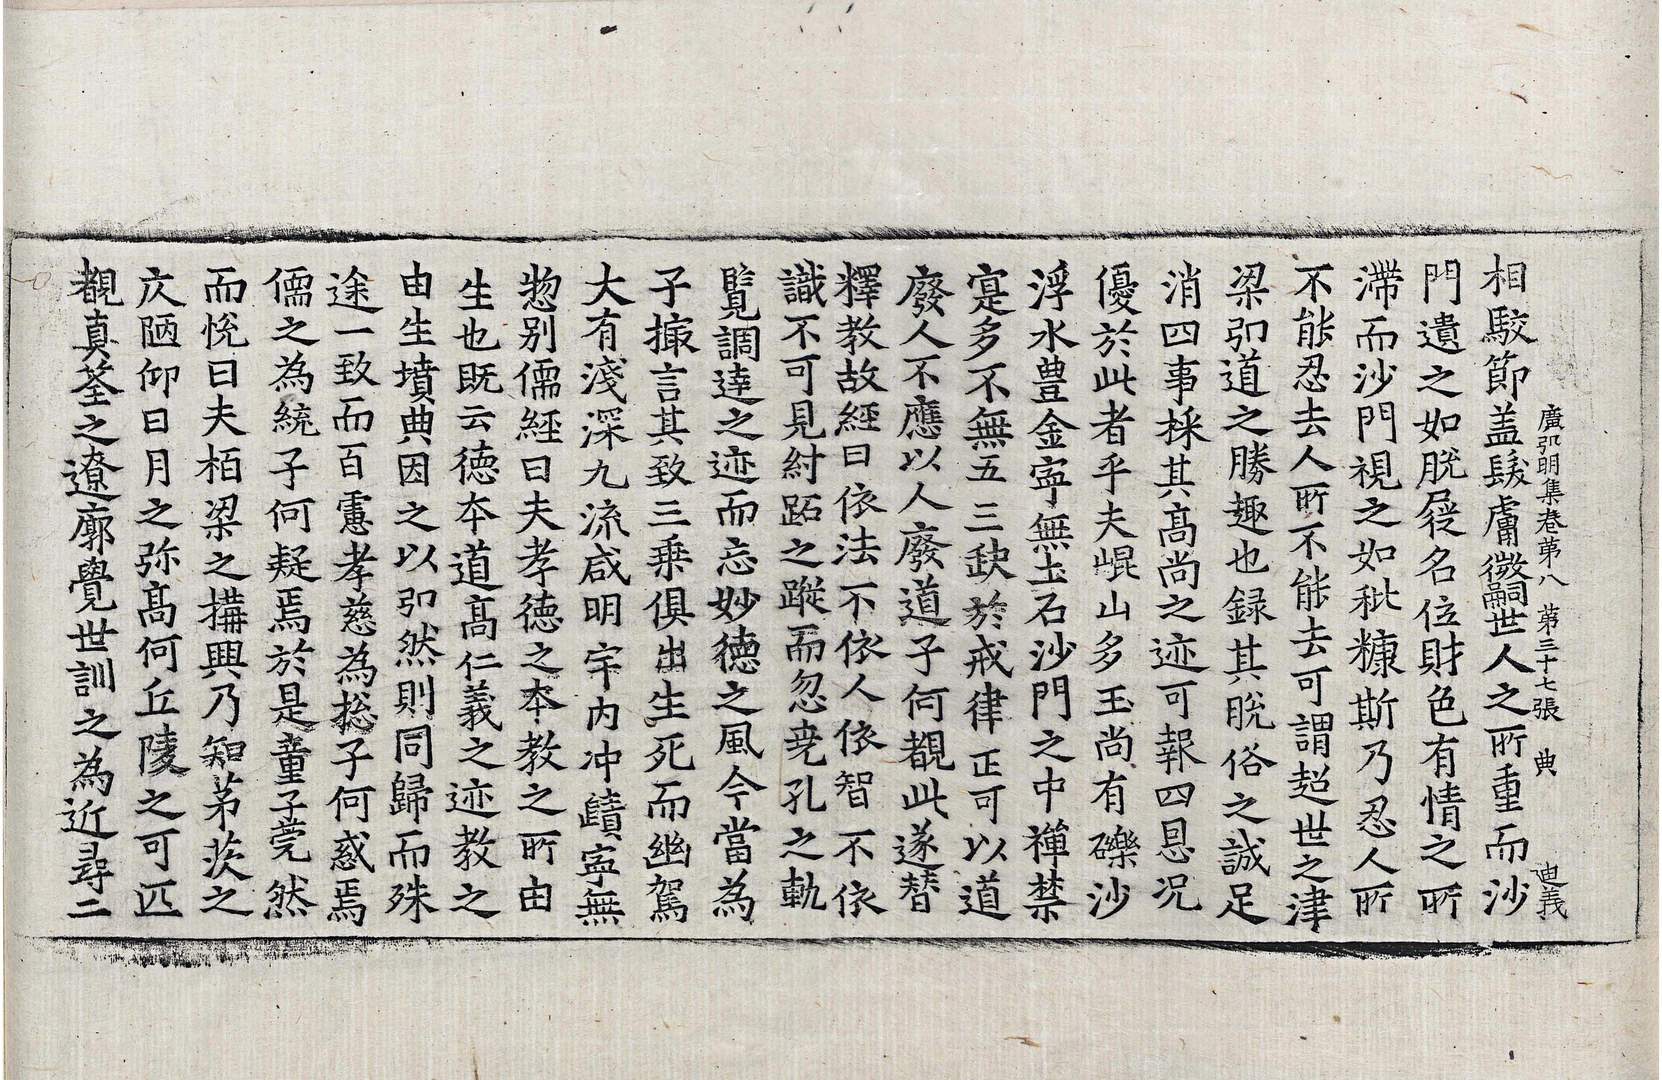 廣弘明集卷第八 第三十七張 典 迪義
相駮節盖髮膚徽嗣世人之所重而沙
門遺之如脫屣名位財色有情之所
滯而沙門視之如粃糠斯乃忍人所
不能忍去人所不能去可謂超世之津
梁弘道之勝趣也録其脫俗之誠足
消四事採其髙尚之迹可報四恩况
優於此者乎夫崐山多玉尚有礫沙
浮水豊金寜無土石沙門之中禪禁
寔多不無五三缺於戒律正可以道
廢人不應以人廢道子何覩此遂替
釋教故經曰依法不依人依智不依
識不可見紂跖之蹤而忽尭孔之軌
覽調逹之迹而忘妙德之風今當為
子撮言其致三乗俱出生死而幽駕
大有淺深九流咸明宇内冲賾寜無
惣别儒經曰夫孝德之本教之所由
生也既云德本道髙仁義之迹教之
由生墳典因之以弘然則同歸而殊
途一致而百慮孝慈為揔子何惑焉
儒之為統子何疑焉於是童子莞然
而悅曰夫栢梁之搆興乃知茅茨之
仄陋仰日月之弥髙何丘陵之可匹
覩真筌之遼廓覺世訓之為近尋二